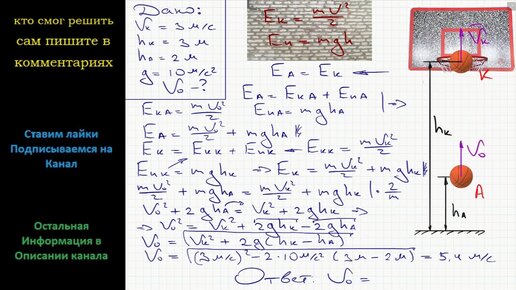 кто смог решить
сам пишите в
комментариях
Ставим лайки
Подписываемся на
Канал
Остальная
Информация в
Описании канала
Дано:
Vк = 3 м/с
hк = 3 м
hА = 2 м
g = 10 м/с²
V₀ - ?
Eк = mV²/2
Eп = mgh
EА = Eк
EА = EкА + EпА
EкА = mV₀²/2
EпА = mghА
EА = mV₀²/2 + mghА
Eк = Eкк + Eпк ← Eкк = mVк²/2
Eпк = mghк ⇒ Eк = mVк²/2 + mghк
mV₀²/2 + mghА = mVк²/2 + mghк | · 2/m
V₀² + 2ghА = Vк² + 2ghк ⇒
⇒ V₀² = Vк² + 2ghк - 2ghА
V₀ = √(Vк² + 2g(hк - hА))
V₀ = √((3 м/с)² - 2·10 м/с² (3м - 2м)) = 5,4 м/с
Ответ: V₀ =
Vк
К
hк
V₀
А
hА